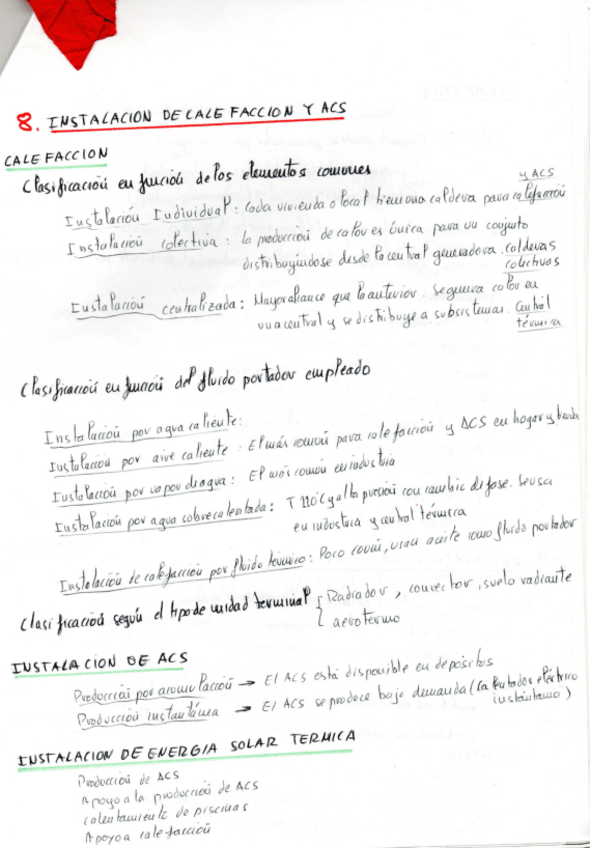 8. INSTALACION DE CALEFACCION Y ACS
CALEFACCION
Clasificación en función de los elementos comunes
Instalación Individual: Cada vivienda o local tiene una caldera para calefacción y ACS
Instalación colectiva: la producción de calor es única para un conjunto
distribuyéndose desde la central generadora. calderas
colectivas
Instalación centralizada: Mayor alcance que la anterior. Se genera calor en
una central y se distribuye a subsistemas. Central
térmica
Clasificación en función del fluido portador empleado
Instalación por agua caliente:
Instalación por aire caliente: El más común para calefacción y ACS en hogar y tienda
Instalación por vapor de agua: El más común en industria
Instalación por agua sobrecalentada: T 110°C y alta presión con cambio de fase. Se usa
en industria y central térmica
Instalación de calefacción por fluido térmico: Poco común, usan aceite como fluido portador
Clasificación según el tipo de unidad terminal { Radiador, convector, suelo radiante
aerotermo
INSTALACION DE ACS
Producción por acumulación → El ACS está disponible en depósitos
Producción instantánea → El ACS se produce bajo demanda (Calentador eléctrico
instantáneo)
INSTALACION DE ENERGIA SOLAR TERMICA
Producción de ACS
Apoyo a la producción de ACS
calentamiento de piscinas
Apoyo a calefacción